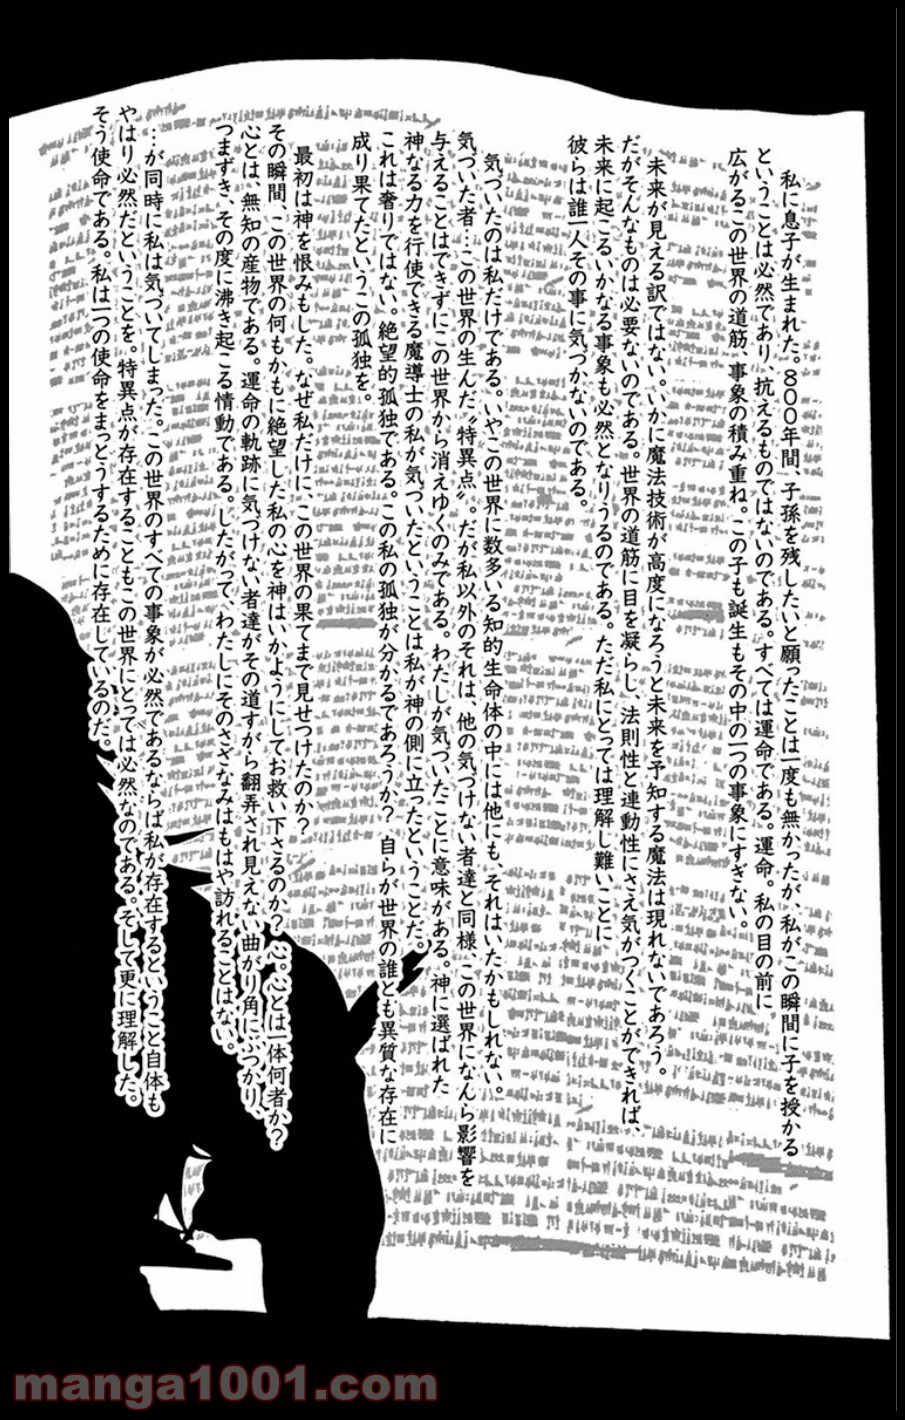 私に息子が生まれた。800年間、子孫を残したいと願ったことは一度も無かったが、私がこの瞬間に子を授かる
ということは必然であり、抗えるものではないのである。すべては運命である。運命。私の目の前に
広がるこの世界の道筋、事象の積み重ね。この子も誕生もその中の一つの事象にすぎない。
未来が見える訳ではない。いかに魔法技術が高度になろうと未来を予知する魔法は現れないであろう。
だがそんなものは必要ないのである。世界の道筋に目を凝らし、法則性と連動性にさえ気がつくことができれば、
未来に起こるいかなる事象も必然となりうるのである。ただ私にとっては理解し難いことに
彼らは誰一人その事に気づかないのである。
気づいたのは私だけである。いやこの世界に数多いる知的生命体の中には他にも、それはいたかもしれない。
気づいた者…この世界の生んだ〝特異点〟。だが私以外のそれは、他の気づけない者達と同様、この世界になんら影響を
与えることはできずにこの世界から消えゆくのみである。わたしが気づいたことに意味がある。神に選ばれた
神なる力を行使できる魔導士の私が気づいたということは私が神の側に立ったということだ。
これは奢りではない。絶望的孤独である。この私の孤独が分かるであろうか？自らが世界の誰とも異質な存在に
成り果てたというこの孤独を。
最初は神を恨みもした。なぜ私だけに、この世界の果てまで見せつけたのか？
その瞬間、この世界の何もかもに絶望した私の心を神はいかようにしてお救い下さるのか？心。心とは一体何者か？
心とは、無知の産物である。運命の軌跡に気づけない者達がその道すがら翻弄され見えない曲がり角にぶつかり、
つまずき、その度に沸き起こる情動である。したがって、わたしにそのさざなみはもはや訪れることはない。
…が同時に私は気づいてしまった。この世界のすべての事象が必然であるならば私が存在するということ自体も
やはり必然だということを。特異点が存在することもこの世界にとっては必然なのである。そして更に理解した。
そう使命である。私は一つの使命をまっとうするために存在しているのだ。
manga1001.com